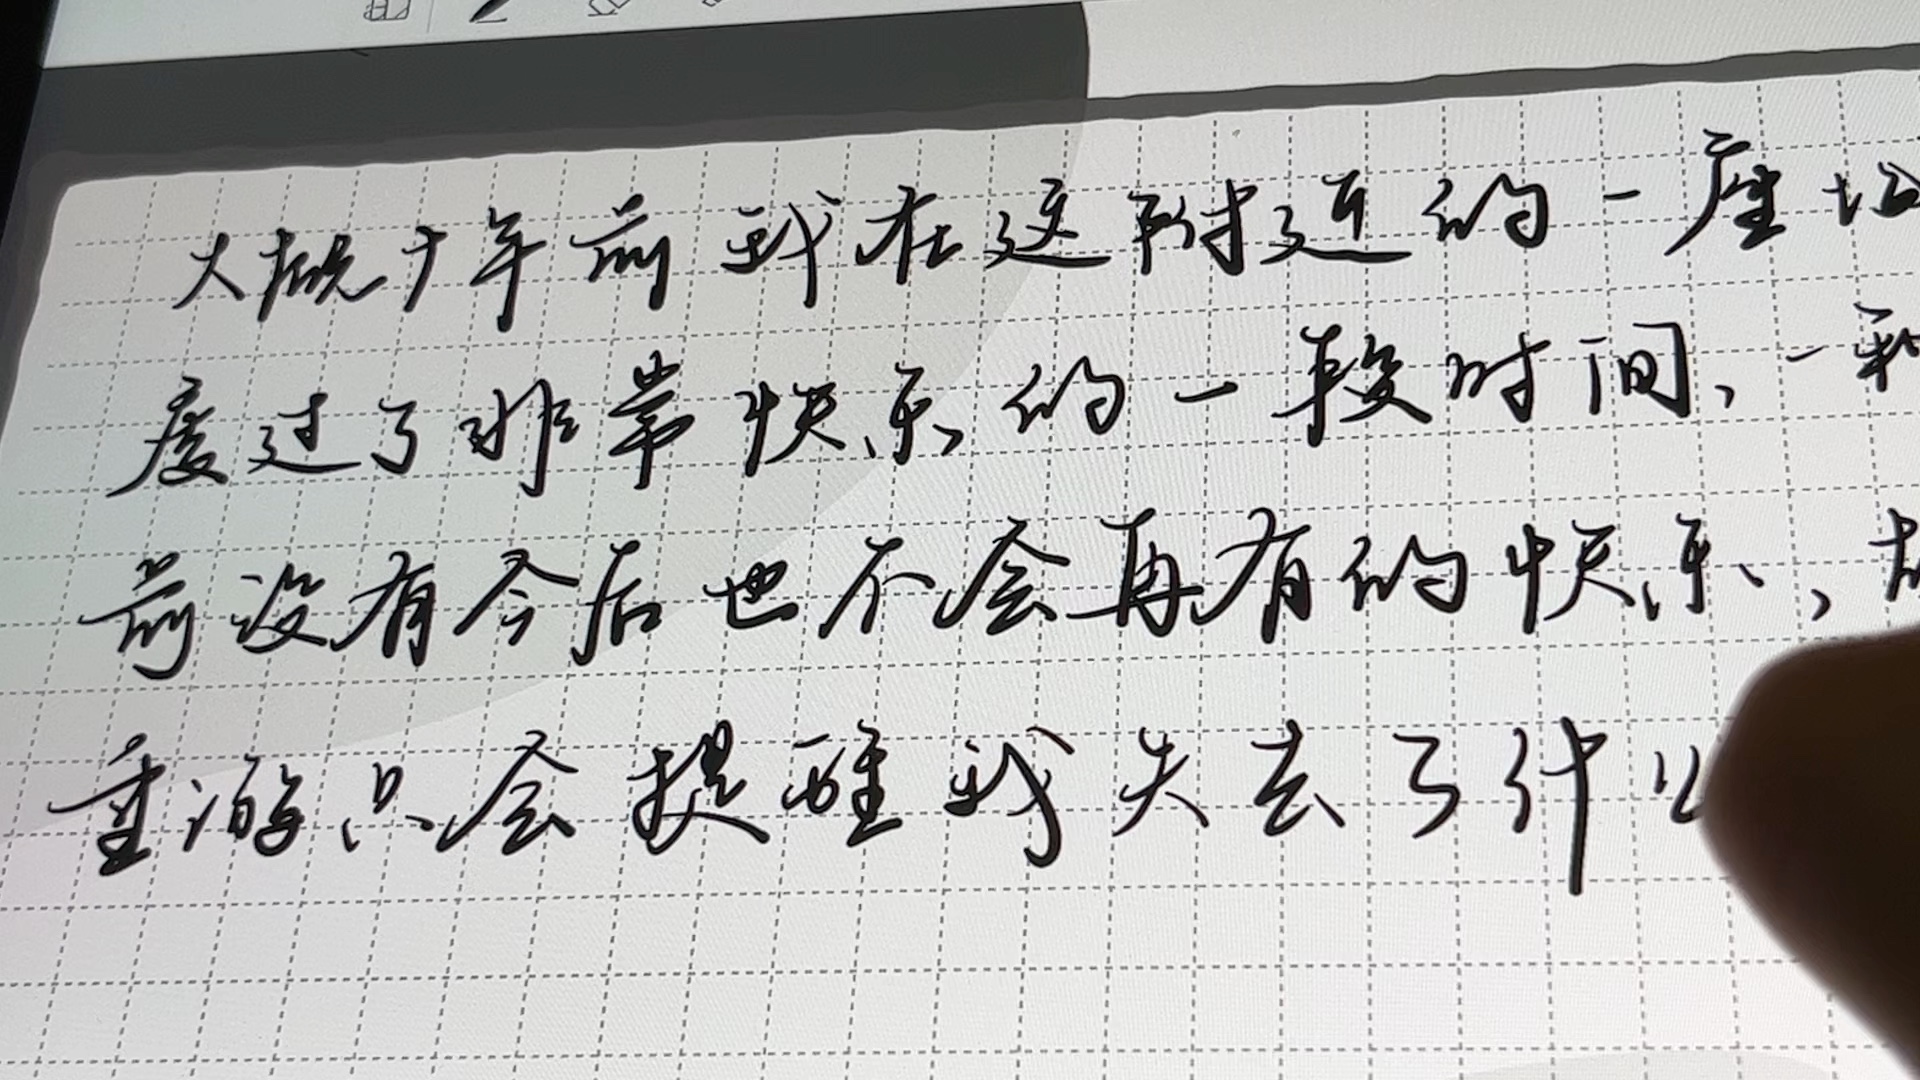 大概十年前我在这附近的一座
度过了非常快乐的一段时间、一种
前没有今后也不会再有的快乐、,
重游只会提醒我失去了什么